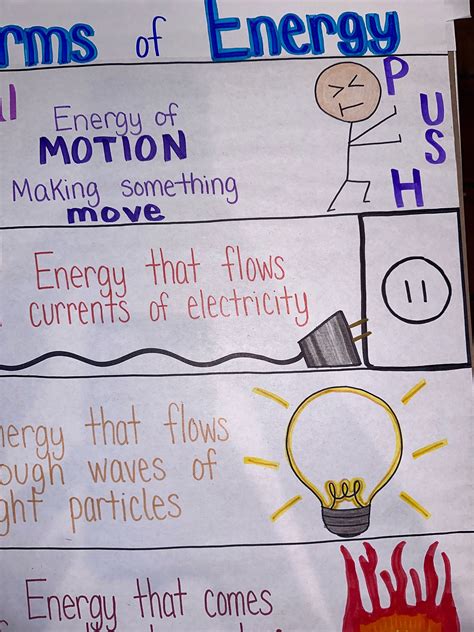 rms of Energy
l
Energy of
MOTION
Making something
move
PUSH
Energy that flows
currents of electricity
nergy that flows
ough waves of
ght particles
Energy that comes